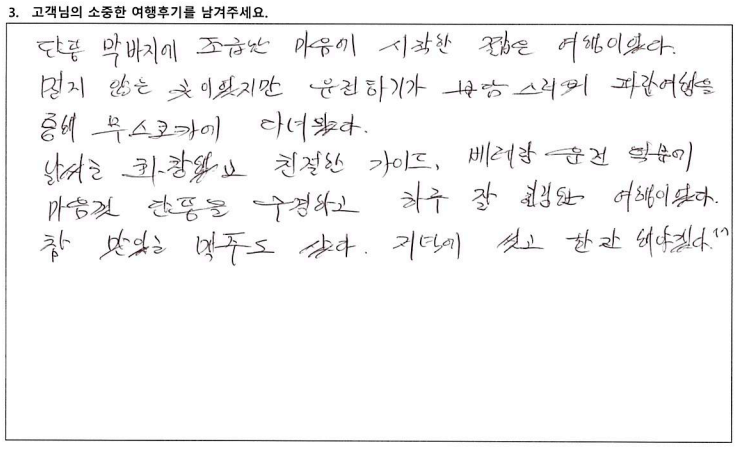 3. 고객님의 소중한 여행후기를 남겨주세요.
단풍 막바지에 조급한 마음에 시작한 짧은 여행이었다.
멀지 않은 곳이었지만 운전하기가 부담스러워 파란여행을
통해 무스코카에 다녀왔다.
날씨는 화창했고 친절한 가이드, 베테랑 운전 덕분에
마음껏 단풍을 구경하고 하루 잘 힐링한 여행이었다.
참 맛있는 맥주도 샀다. 저녁에 씻고 한잔 해야겠다.^^